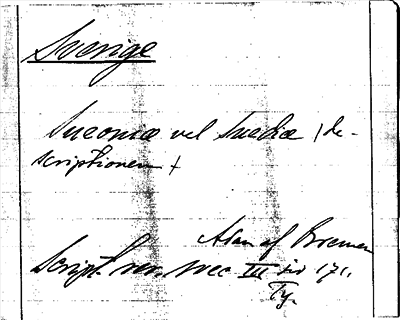 Sverige
Sueoniæ vel Sueciæ (de-
scriptionem +
Adam af Bremen
Script. rer. svec. III sid 171.
Ty.